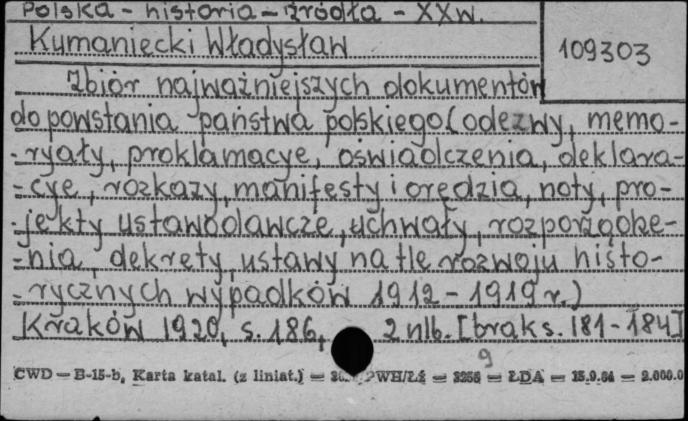 Polska - historia - źródła - XX w.
Kumaniecki Władysław
109303
Zbiór najważniejszych dokumentów
do powstania państwa polskiego (odezwy, memo-
-ryały, proklamacye, oświadczenia, deklara-
-cye, rozkazy, manifesty i orędzia, noty, pro-
-jekty ustawodawcze, uchwały, rozporządze-
-nia, dekrety, ustawy na tle rozwoju histo-
-rycznych wypadków 1912 - 1919 r.)
Kraków 1920, s. 186, 2 nlb. [brak s. 181-184]
9
CWD — B-15-b, Karta katal. (z liniat.) — PWH/Łź — 3256 — ŁDA — 15.9.54 — 2.000.0